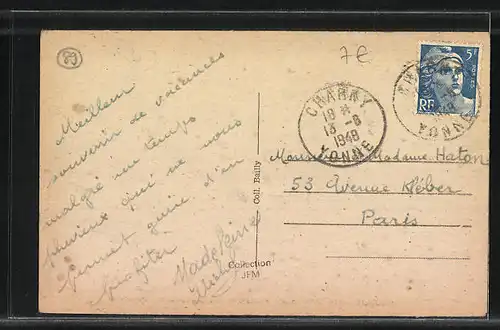 89
7€
Meilleur
souvenir de vacances
malgré un temps
pluvieux qui ne nous
permet guère d'en
profiter
Madeleine
Coll. Bailly
Collection
JFM
CHARNY
18 H
13-8
1948
YONNE
5F
RF
YONNE
Monsieur Madame Haton
53 Avenue Kléber
Paris